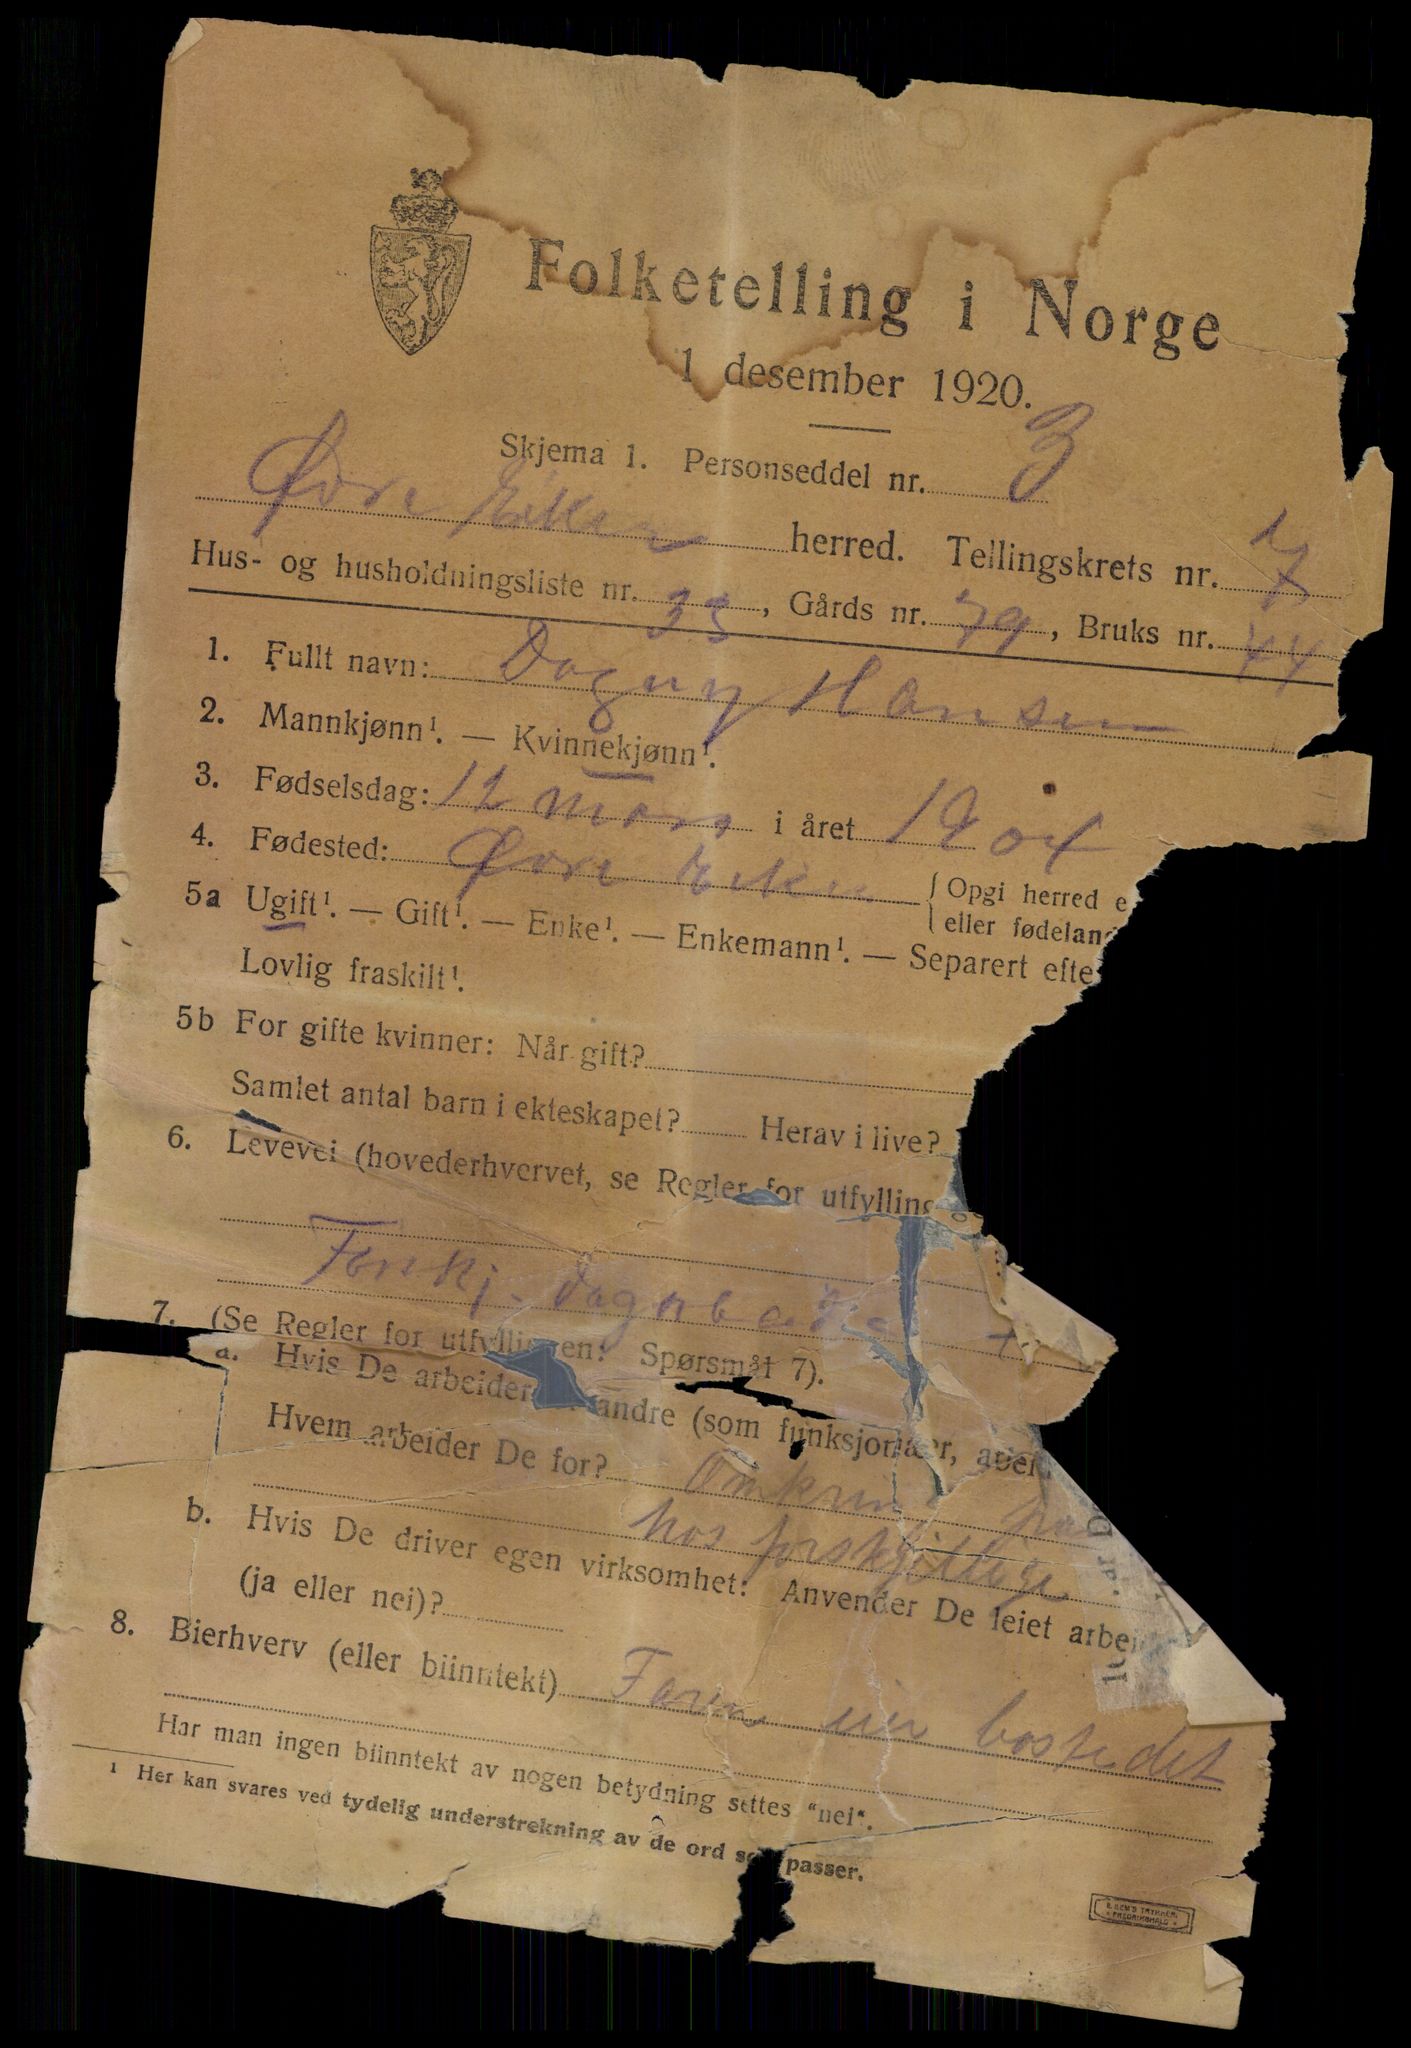 Folketelling i Norge
1 desember 1920.
Skjema 1. Personseddel nr. 3
Øvre Eiker herred. Tellingskrets nr. 7
Hus- og husholdningsliste nr. 33, Gårds nr. 79, Bruks nr. 44
1. Fullt navn: Dagny Hansen
2. Mannkjønn¹. — Kvinnekjønn¹.
3. Fødselsdag: 12 mars i året 1904
4. Fødested: Øvre Eiker {Opgi herred e
eller fødeland
5a Ugift¹. — Gift¹. — Enke¹. — Enkemann¹. — Separert efte
Lovlig fraskilt¹.
5b For gifte kvinner: Når gift?
Samlet antal barn i ekteskapet? Herav i live?
6. Levevei (hovederhvervet, se Regler for utfylling
Forskj. dagarbeide
7. (Se Regler for utfyllingen: Spørsmål 7).
a. Hvis De arbeider andre (som funksjonær, arbei
Hvem arbeider De for? Omkring paa
hos forskjellige
b. Hvis De driver egen virksomhet: Anvender De leiet arbei
(ja eller nei)?
8. Bierhverv (eller biinntekt) Faren eier bostedet
Har man ingen biinntekt av nogen betydning settes "nei".
¹ Her kan svares ved tydelig understrekning av de ord so passer.
E. SEM'S TRYKKERI,
FREDRIKSHALD